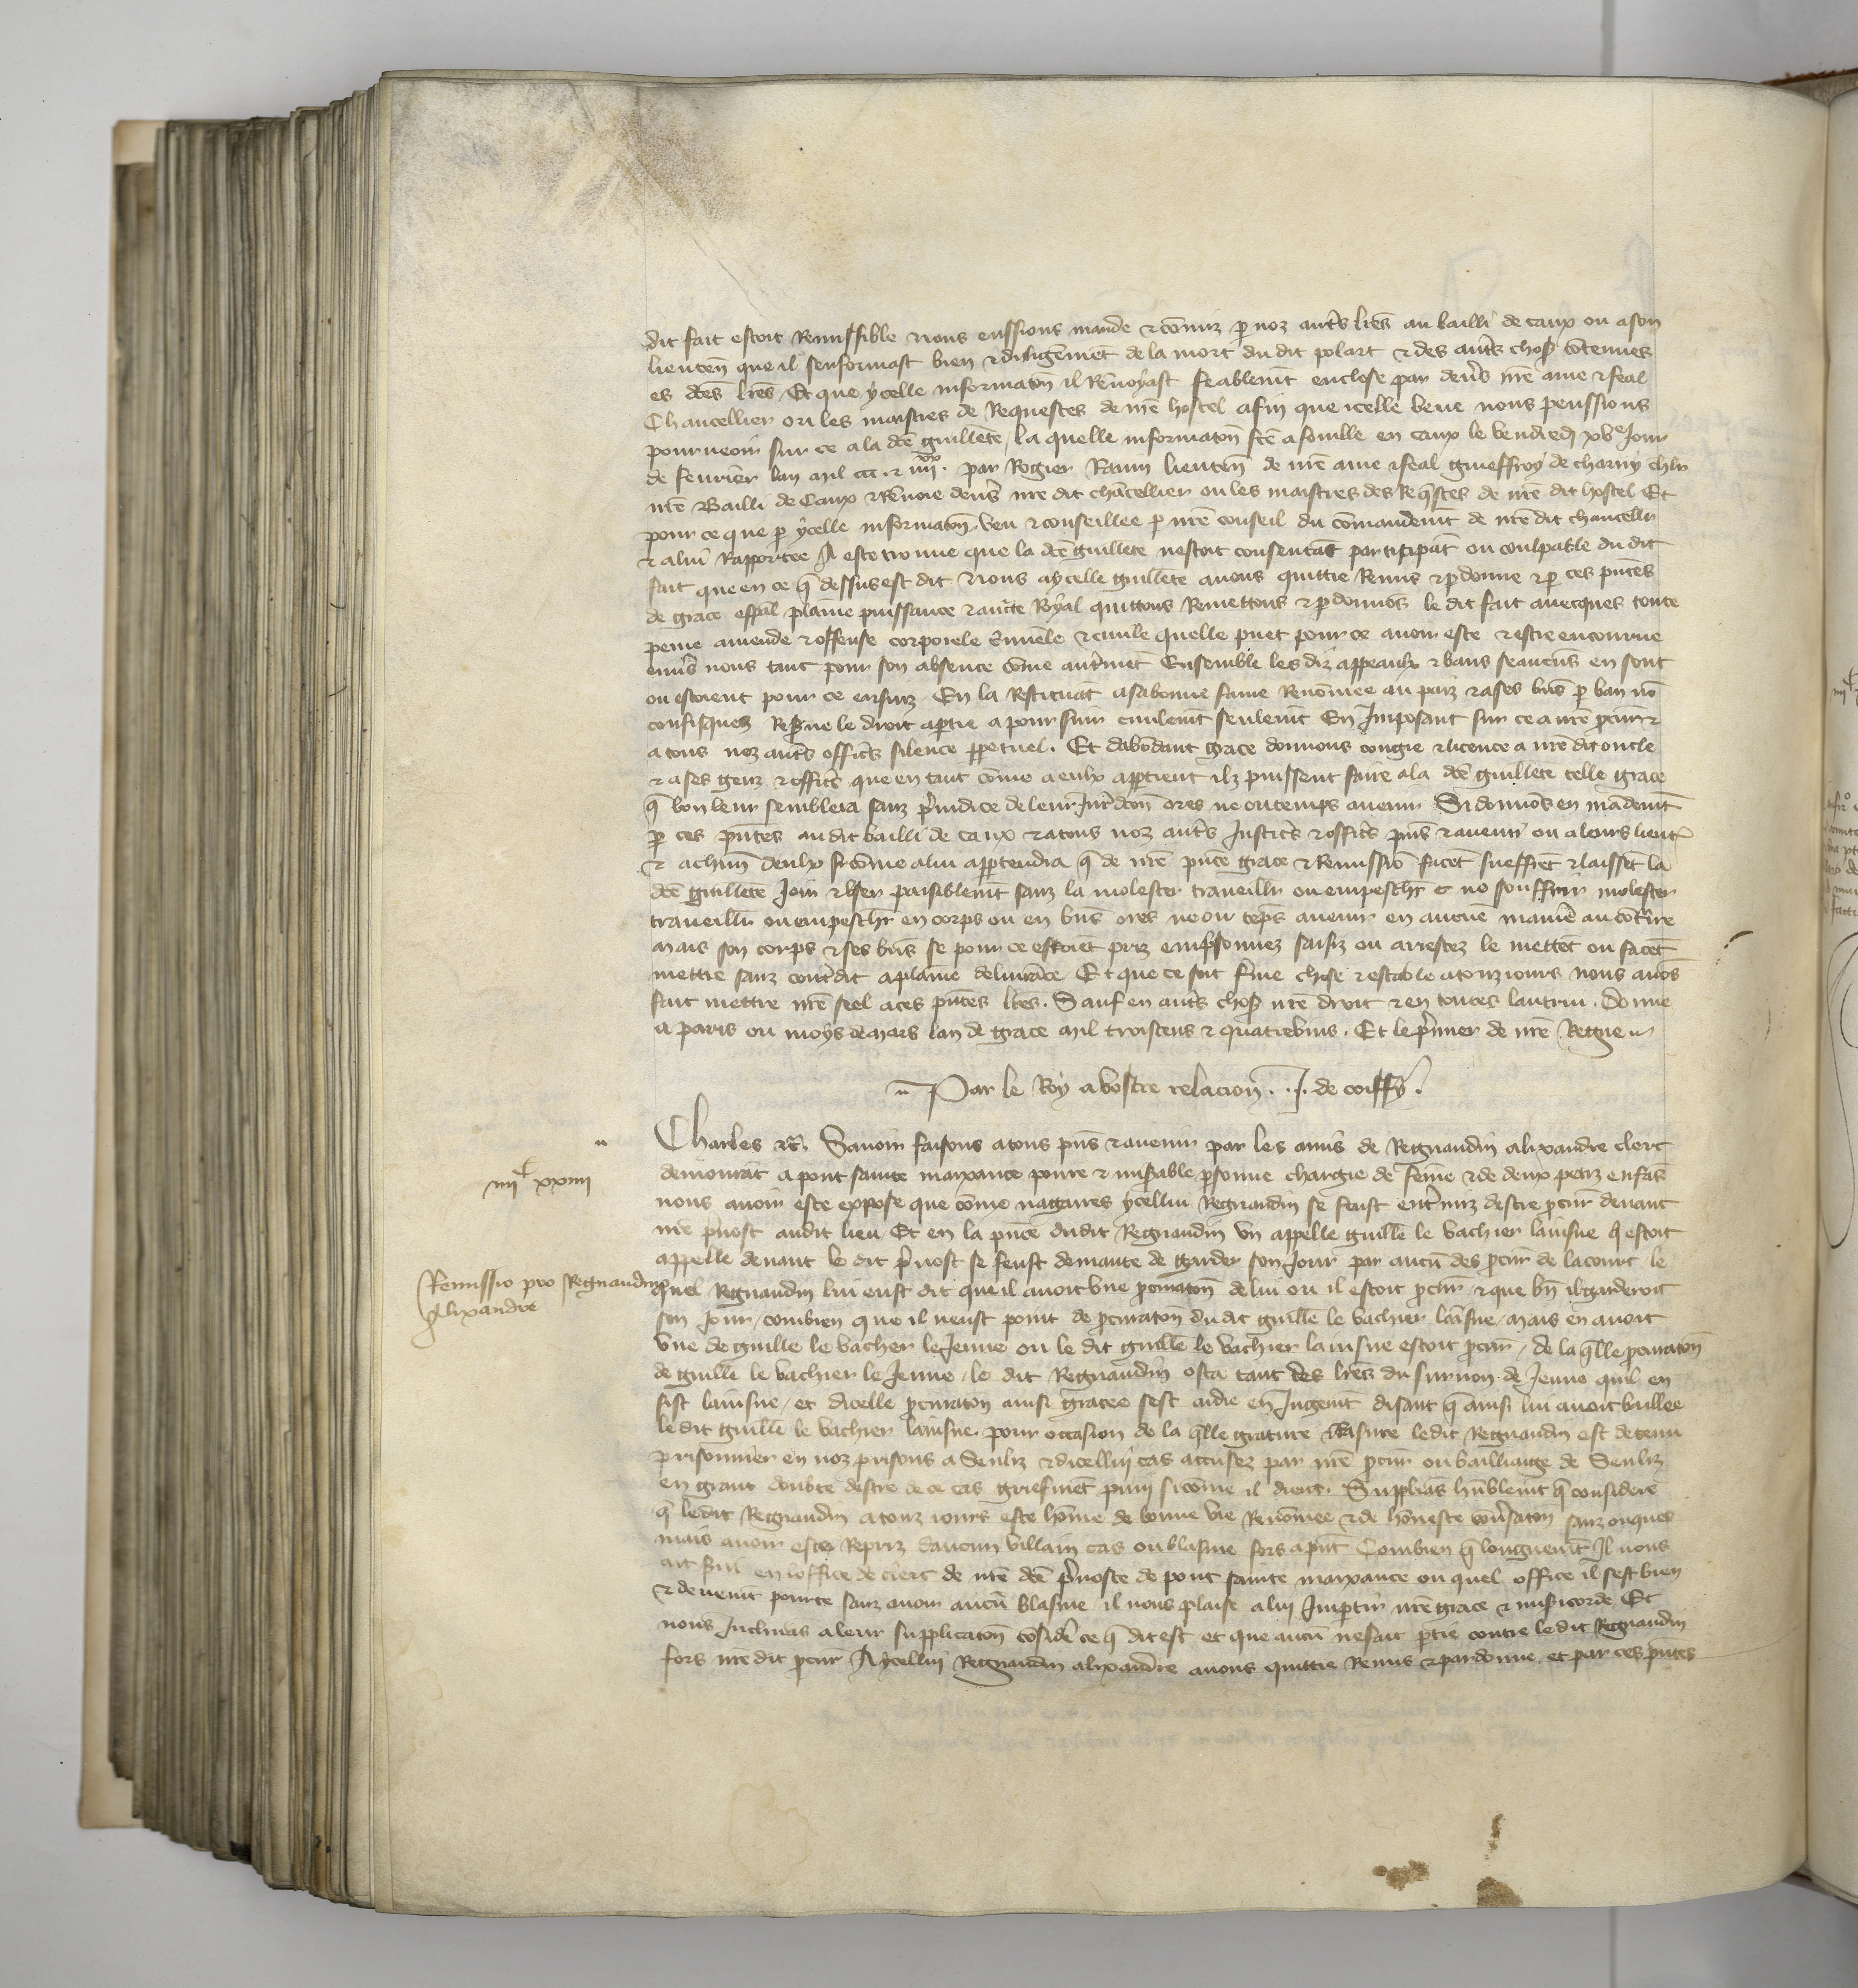 dit fait estoit Remissible nous eussions mande & cōmis p noz autˢ lrēs au bailli de caux ou a son
lieuten̄ que il senformast bien & diligēment de la mort du dit polart & des autˢ choses cōtenues
es dc̄es lrēs. Et que ycelle informaton̄ il Rēnoyast feablemēt enclose par deuˢs nr̄e ame & feal
Chancellier ou les maistres de Requestes de nr̄e hostel afin que icelle veue nous peussions
pourueoir sur ce a la dc̄e guillete, la quelle informaton̄ fcē a fouille en caux le vendredj xvᵉ Jour
de feurier lan mil ccc & iiijxx par Rogier lieuten̄ de nr̄e ame & feal gueffroy de charny chlr
nr̄e Bailli de Caux & Rēuoie deuˢs nr̄e dit chācellier ou les maistres des Reqˢtes de nr̄e dit hostel Et
pour ce que p ycelle informaton̄ veu & conseillee p nr̄e conseil du cōmandemēt de nr̄e dit chancellr
& a lui Rapportee A este trouue que la dc̄e guillete nestoit consentāt partipāt ou coulpable du dit
fait que en ce q̄ dessus est dit Nous a ycelle guillete auons quittie Remis & pdonne & p ces pn̄tes
de grace esp̄al plaine puissance & aucte Royal quittons Remettons & pdonnōs le dit fait auecques toute
peine amende & offense corporele c̄minele & ciuile quelle puet pour ce auoir este & estre encourue
enuˢs nous tant pour son absence cōme autˢment Ensemble les diz appeaulx & bans se aucūs en sont
ou estoient pour ce ensuiz En la Restituāt a sa bonne fame Renōmee au pais & a ses biēs p ban nō
confisquez Reserue le droit a ptie a poursuir ciuilemēt seulemēt En Imposant sur ce a nr̄e pcur̄ &
a tous noz autˢ officˢ silence ppetuel. Et dabōdant grace donnons congie & licence a nr̄e dit oncle
& a ses genz & officˢ que en tant cōme a eulx aptient ilz puissent faire a la dc̄e guillete telle grace
q̄ bon leur semblera sanz pˢiudice de leur Jurˢdcōn ores ne ou temps auenir Si donnōs en mādemēt
p ces pn̄tes au dit bailli de caux & a tous noz autˢ Justicˢ & officˢ pn̄s & auenir ou a leurs lieuten̄
& a chūn deulx si cōme a lui aptendra q̄ de nr̄e pn̄te grace & Remissiō facēt sueffrēt & laissēt la
dc̄e guillete Joir & vser paisiblemēt sanz la molester traueillr ou empeschr & nō souffrir molester
traueillr ou empeschr en corps ou en biēs ores ne ou tēps auenir en aucune maniēr au cōtˢire
Mais son corps & ses biēs se pour ce estoiēt priz empˢsonnez saisiz ou arrestez le mettēt ou facēt
mettre sanz contˢdit a plaine deliurāce. Et que ce soit fˢme chose & estable a touzjours nous auōs
fait mettre nr̄e seel a ces pn̄tes lrēs. Sauf en autˢ choses nr̄e droit & en toutes lautrui. Donne
a paris ou moys de Mars lan de grace mil troiscens & quatrevins. Et le pˢmier de nr̄e Regne
Par le Roy a vostre relacion. J. de coiffy.
Charles &c̄. Sauoir faisons a tous pn̄s & auenir par les amis de Regnaudin alixandre clerc
iiijᶜ xxiiij
demourāt a pont sainte maxance poure & misˢable psonne chargie de fēme & de deux petiz enfāˢ
nous auoir este expose que cōme nagaires ycellui Regnaudin se feust entˢmiz destre pcur̄ deuant
nr̄e pˢuost audit lieu Et en la pn̄ce dudit Regnaudin vn appelle guill̄e le vachier lainsne q̄ estoit
appelle deuant le dit pˢuost se feust demante de garder son Jour par aucū des pcur̄ de la court le
Remissio pro Regnaudino Alixandre
quel Regnaudin lui eust dit que il auoit vne pcuraton̄ de lui ou il estoit pcur̄ & que bn̄ il garderoit
son Jour, combien que il neust point de pcuraton̄ du dit guill̄e le vachier lainsne, mais en auoit
vne de guill̄e le vachier le Jeune ou le dit guill̄e le vachier lainsne estoit pcur̄, de la q̄lle pcuraton̄
de guill̄e le vachier le Jeune, le dit Regnaudin osta tant des lrēs du surnon de Jeune quil en
fist lainsne, et dicelle pcuraton ainsi gratee sest aidie en Jugemēt disant q̄ ainsi lui auoit baillee
le dit guill̄e le vachier lainsne. pour occasion de la q̄lle grature Rasure ledit Regnaudin est detenu
prisonnier en noz prisons a Senliz & dicellui cas accusez par nr̄e pcur̄ ou bailliage de Senliz
en grant doubte destre de ce cas griefmēt puni si cōme il dient. Suppliās hūblemēt q̄ considere
q̄ ledit Regnaudin a touz iours este hōme de bonne vie Renōmee & de hōneste cōuˢsaton̄ sanz onques
mais auoir este Repriz daucun villain cas ou blasme fors apn̄t Combien q̄ longuemēt Il nous
ait sˢui en loffice de clerc de nr̄e dc̄e pˢuoste de pont sainte maxance ou quel office il sest bien
& deuemēt porte sanz auoir aucū blasme, il nous plaise a lui Impˢtir nr̄e grace & misˢicorde. Et
nous Inclinās a leur supplicaton̄ cōsidere ce q̄ dit est et que aucū ne fait ptie contre le dit Regnaudin
fors nr̄e dit pcur̄ A ycellui Regnaudin alixandre auons quittie Remis & pardonne et par ces pn̄tes